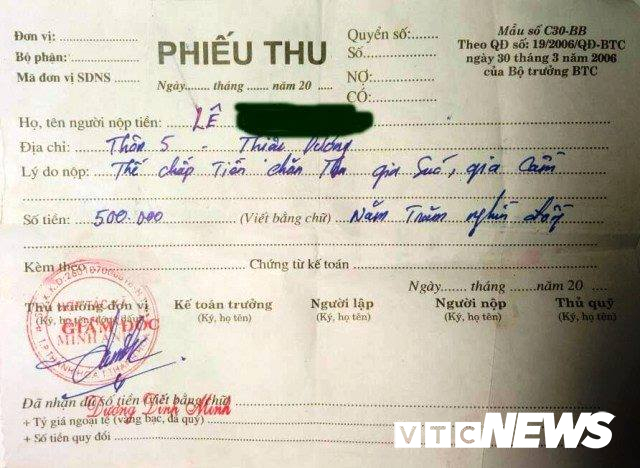 Đơn vị:
Bộ phận:
Mã đơn vị SDNS
PHIẾU THU
Ngày....... tháng ....... năm 20 .....
Quyển số:
Số
NỢ:
CÓ:
Mẫu số C30-BB
Theo QĐ số: 19/2006/QĐ-BTC
ngày 30 tháng 3 năm 2006
của Bộ trưởng BTC
Họ, tên người nộp tiền: LÊ
Địa chỉ: Thôn 5 - Thiệu Dương
Lý do nộp: Thế chấp Tiền chăn gia Súc, gia Cầm
Số tiền: 500.000 (Viết bằng chữ) Năm Trăm nghìn đồng
Kèm theo Chứng từ kế toán
Ngày....... tháng ....... năm 20 .....
Thủ trưởng đơn vị Kế toán trưởng Người lập Người nộp Thủ quỹ
(Ký, họ tên) (Ký, họ tên) (Ký, họ tên) (Ký, họ tên)
GIÁM ĐỐC
Đã nhận đủ số tiền (viết bằng chữ)
Dương Đình Minh
+ Tỷ giá ngoại tệ (vàng bạc, đá quý)
+ Số tiền quy đổi
VTC NEWS